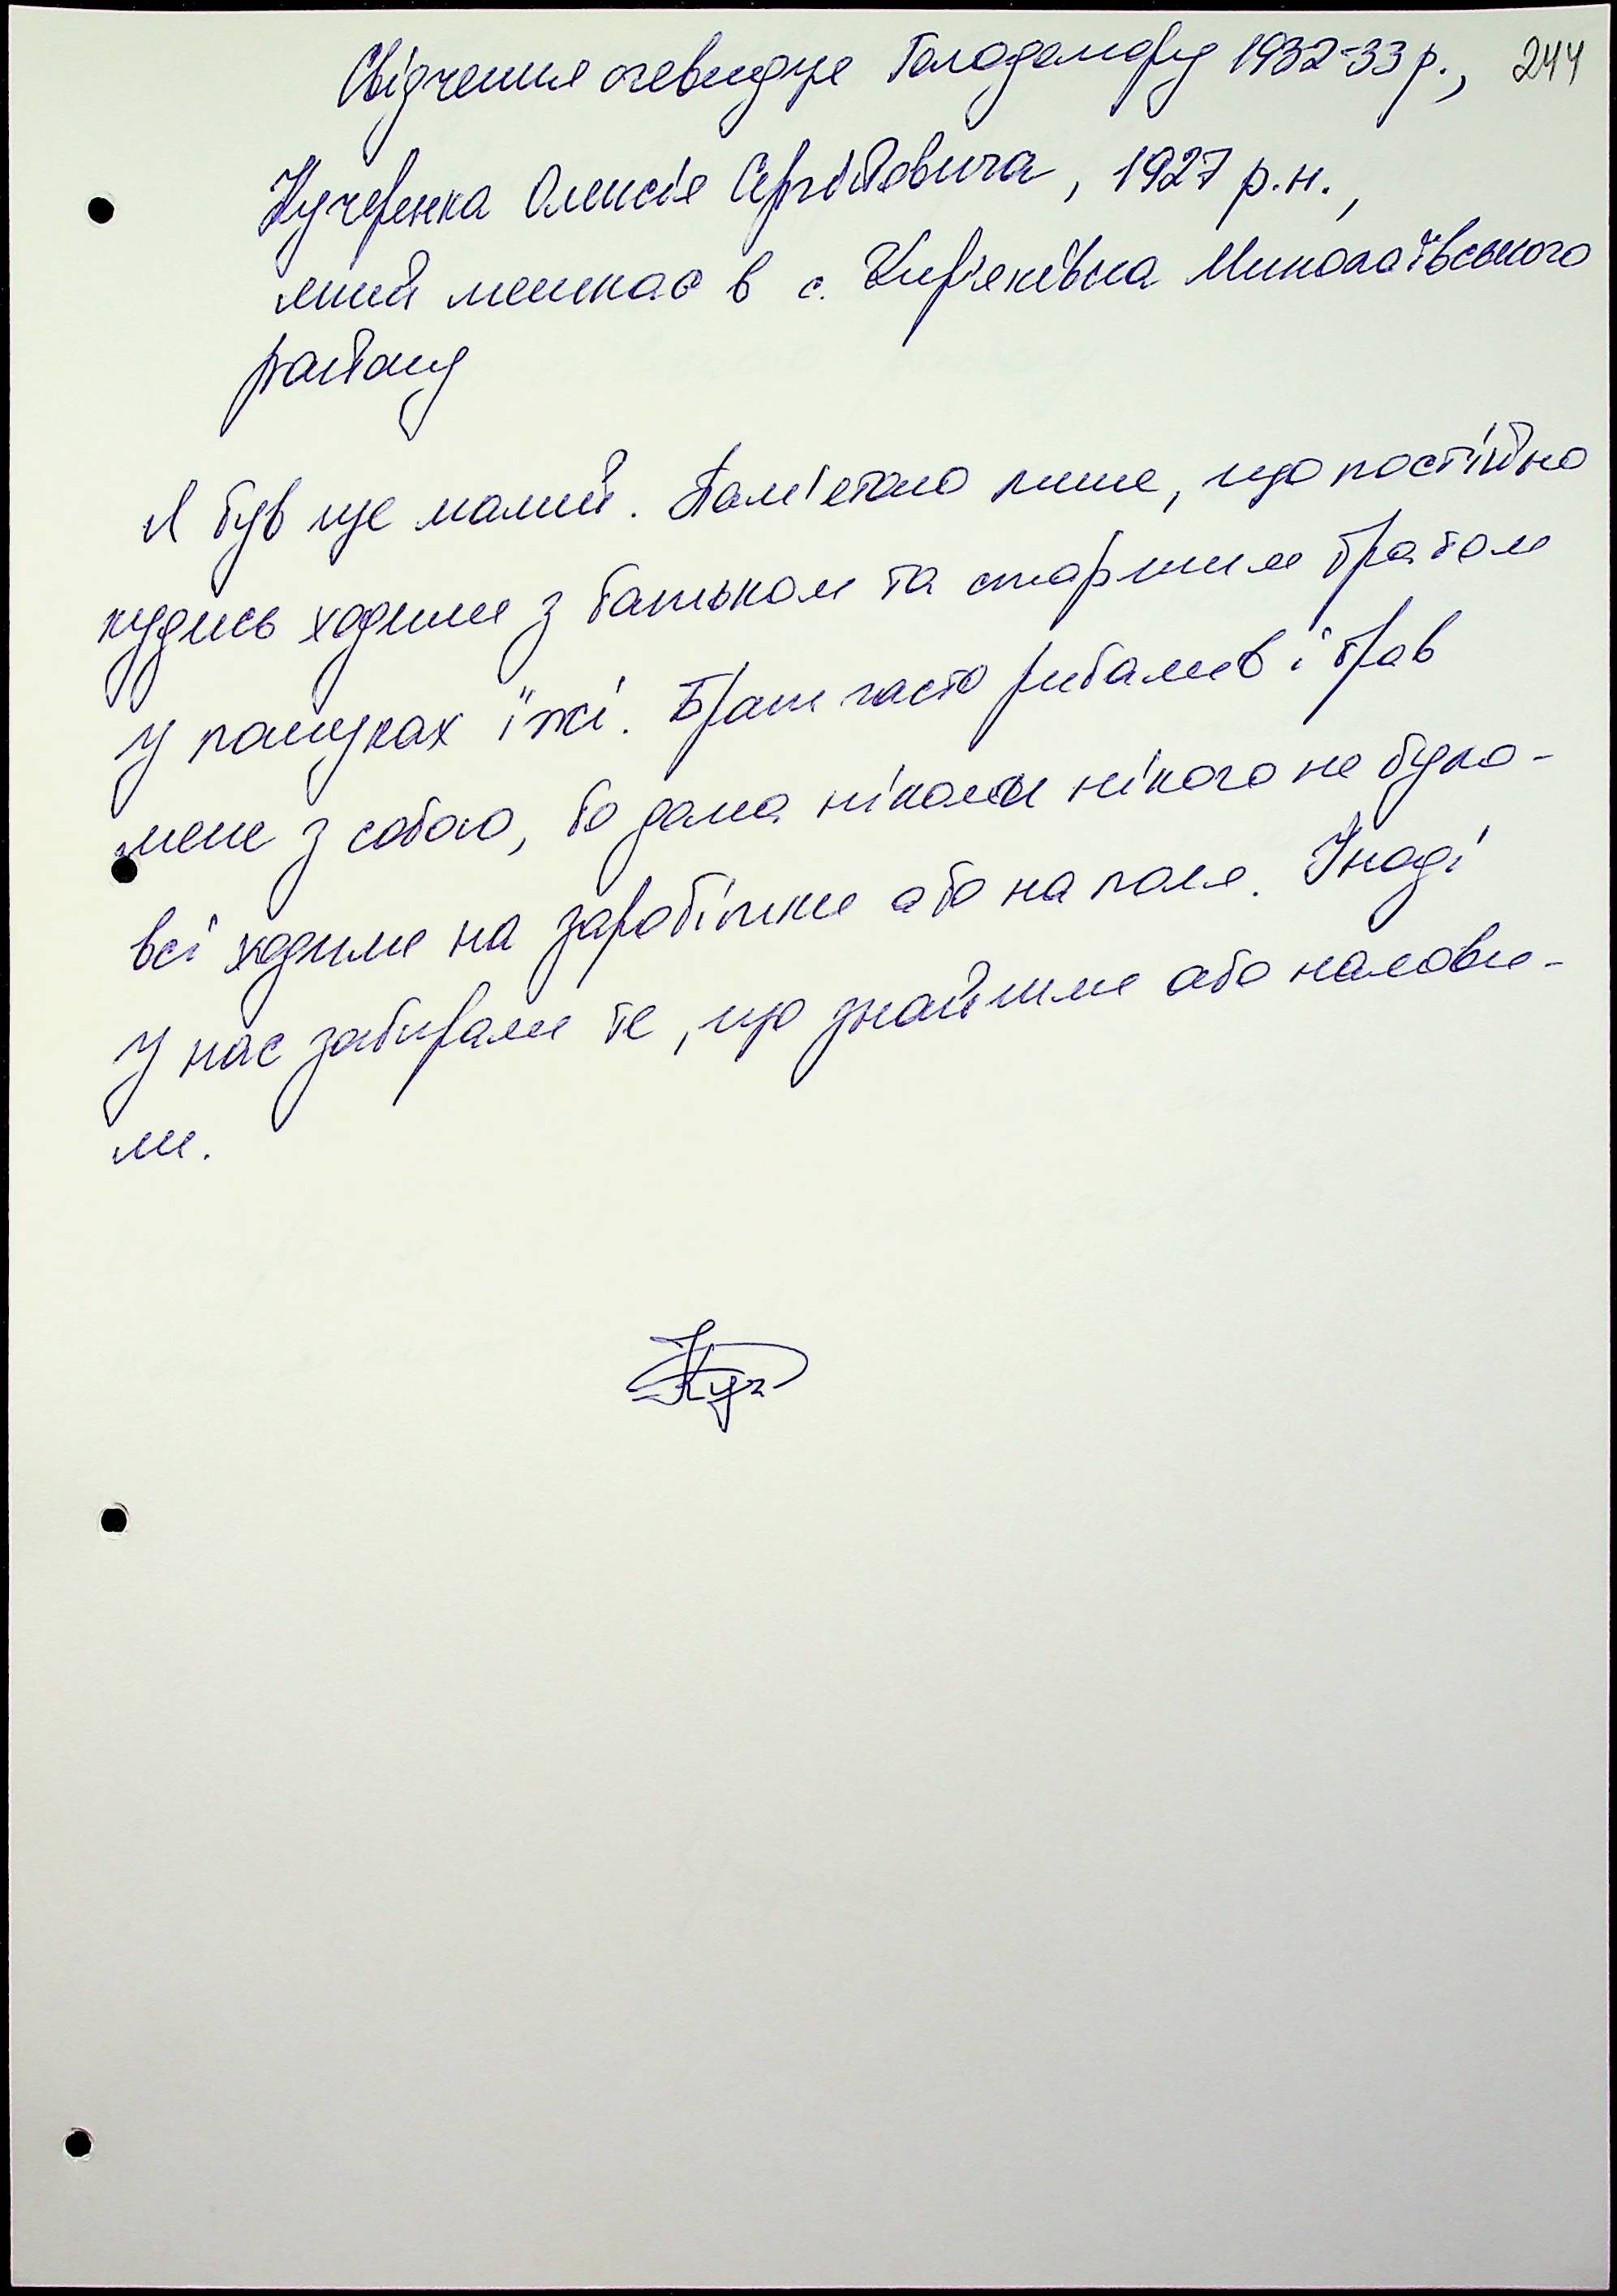 Свідчення очевидця Голодомору 1932-33 р., 244
Кучеренка Олексія Сергійовича, 1927 р.н.,
який мешкає в с. Кир'яківка Миколаївського
району
Я був ще малий. Пам'ятаю лише, що постійно
кудись ходили з батьком та старшим братом
у пошуках їжі. Брат часто рибалив і брав
мене з собою, бо дома ніколи нікого не було -
всі ходили на заробітки або на поля. Іноді
у нас забирали те, що знайшли або налови-
ли.
Куч